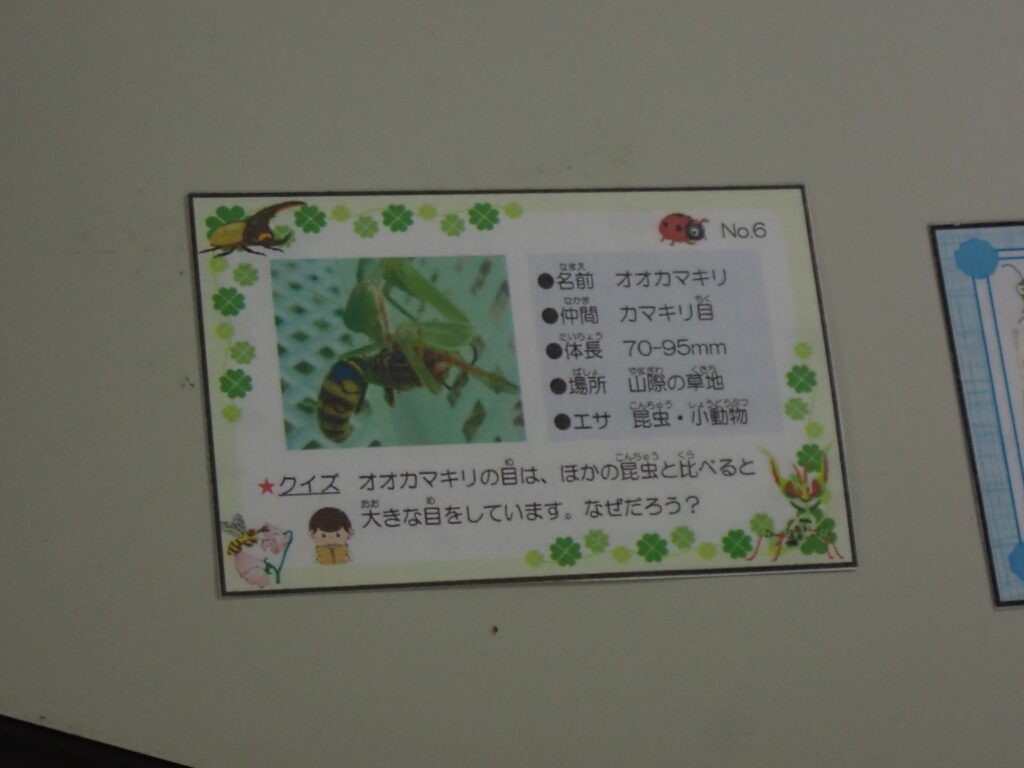 No.6
●名前 オオカマキリ
●仲間 カマキリ目
●体長 70-95mm
●場所 山際の草地
●エサ 昆虫・小動物
★クイズ オオカマキリの目は、ほかの昆虫と比べると
大きな目をしています。なぜだろう?